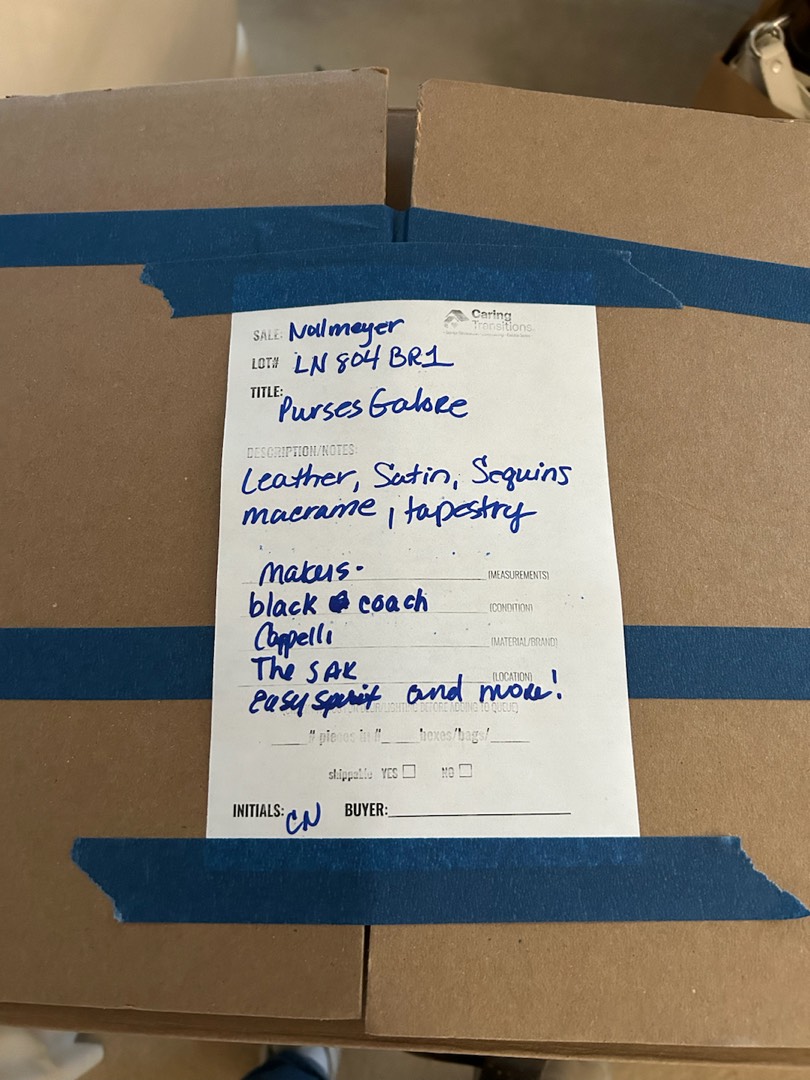 Caring
Transitions.
SALE: Nollmeyer
LOT# LN 804 BR1
TITLE:
Purses Galore
DESCRIPTION/NOTES:
Leather, Satin, Sequins
macrame, tapestry
Makers-
(MEASUREMENTS)
black coach
(CONDITION)
Cappelli
(MATERIAL/BRAND)
The SAK
(LOCATION)
easy spirit and more!
BEFORE ADDING TO QUEUE)
# pieces in # boxes/bags/
shippable YES NO
INITIALS: CN BUYER: